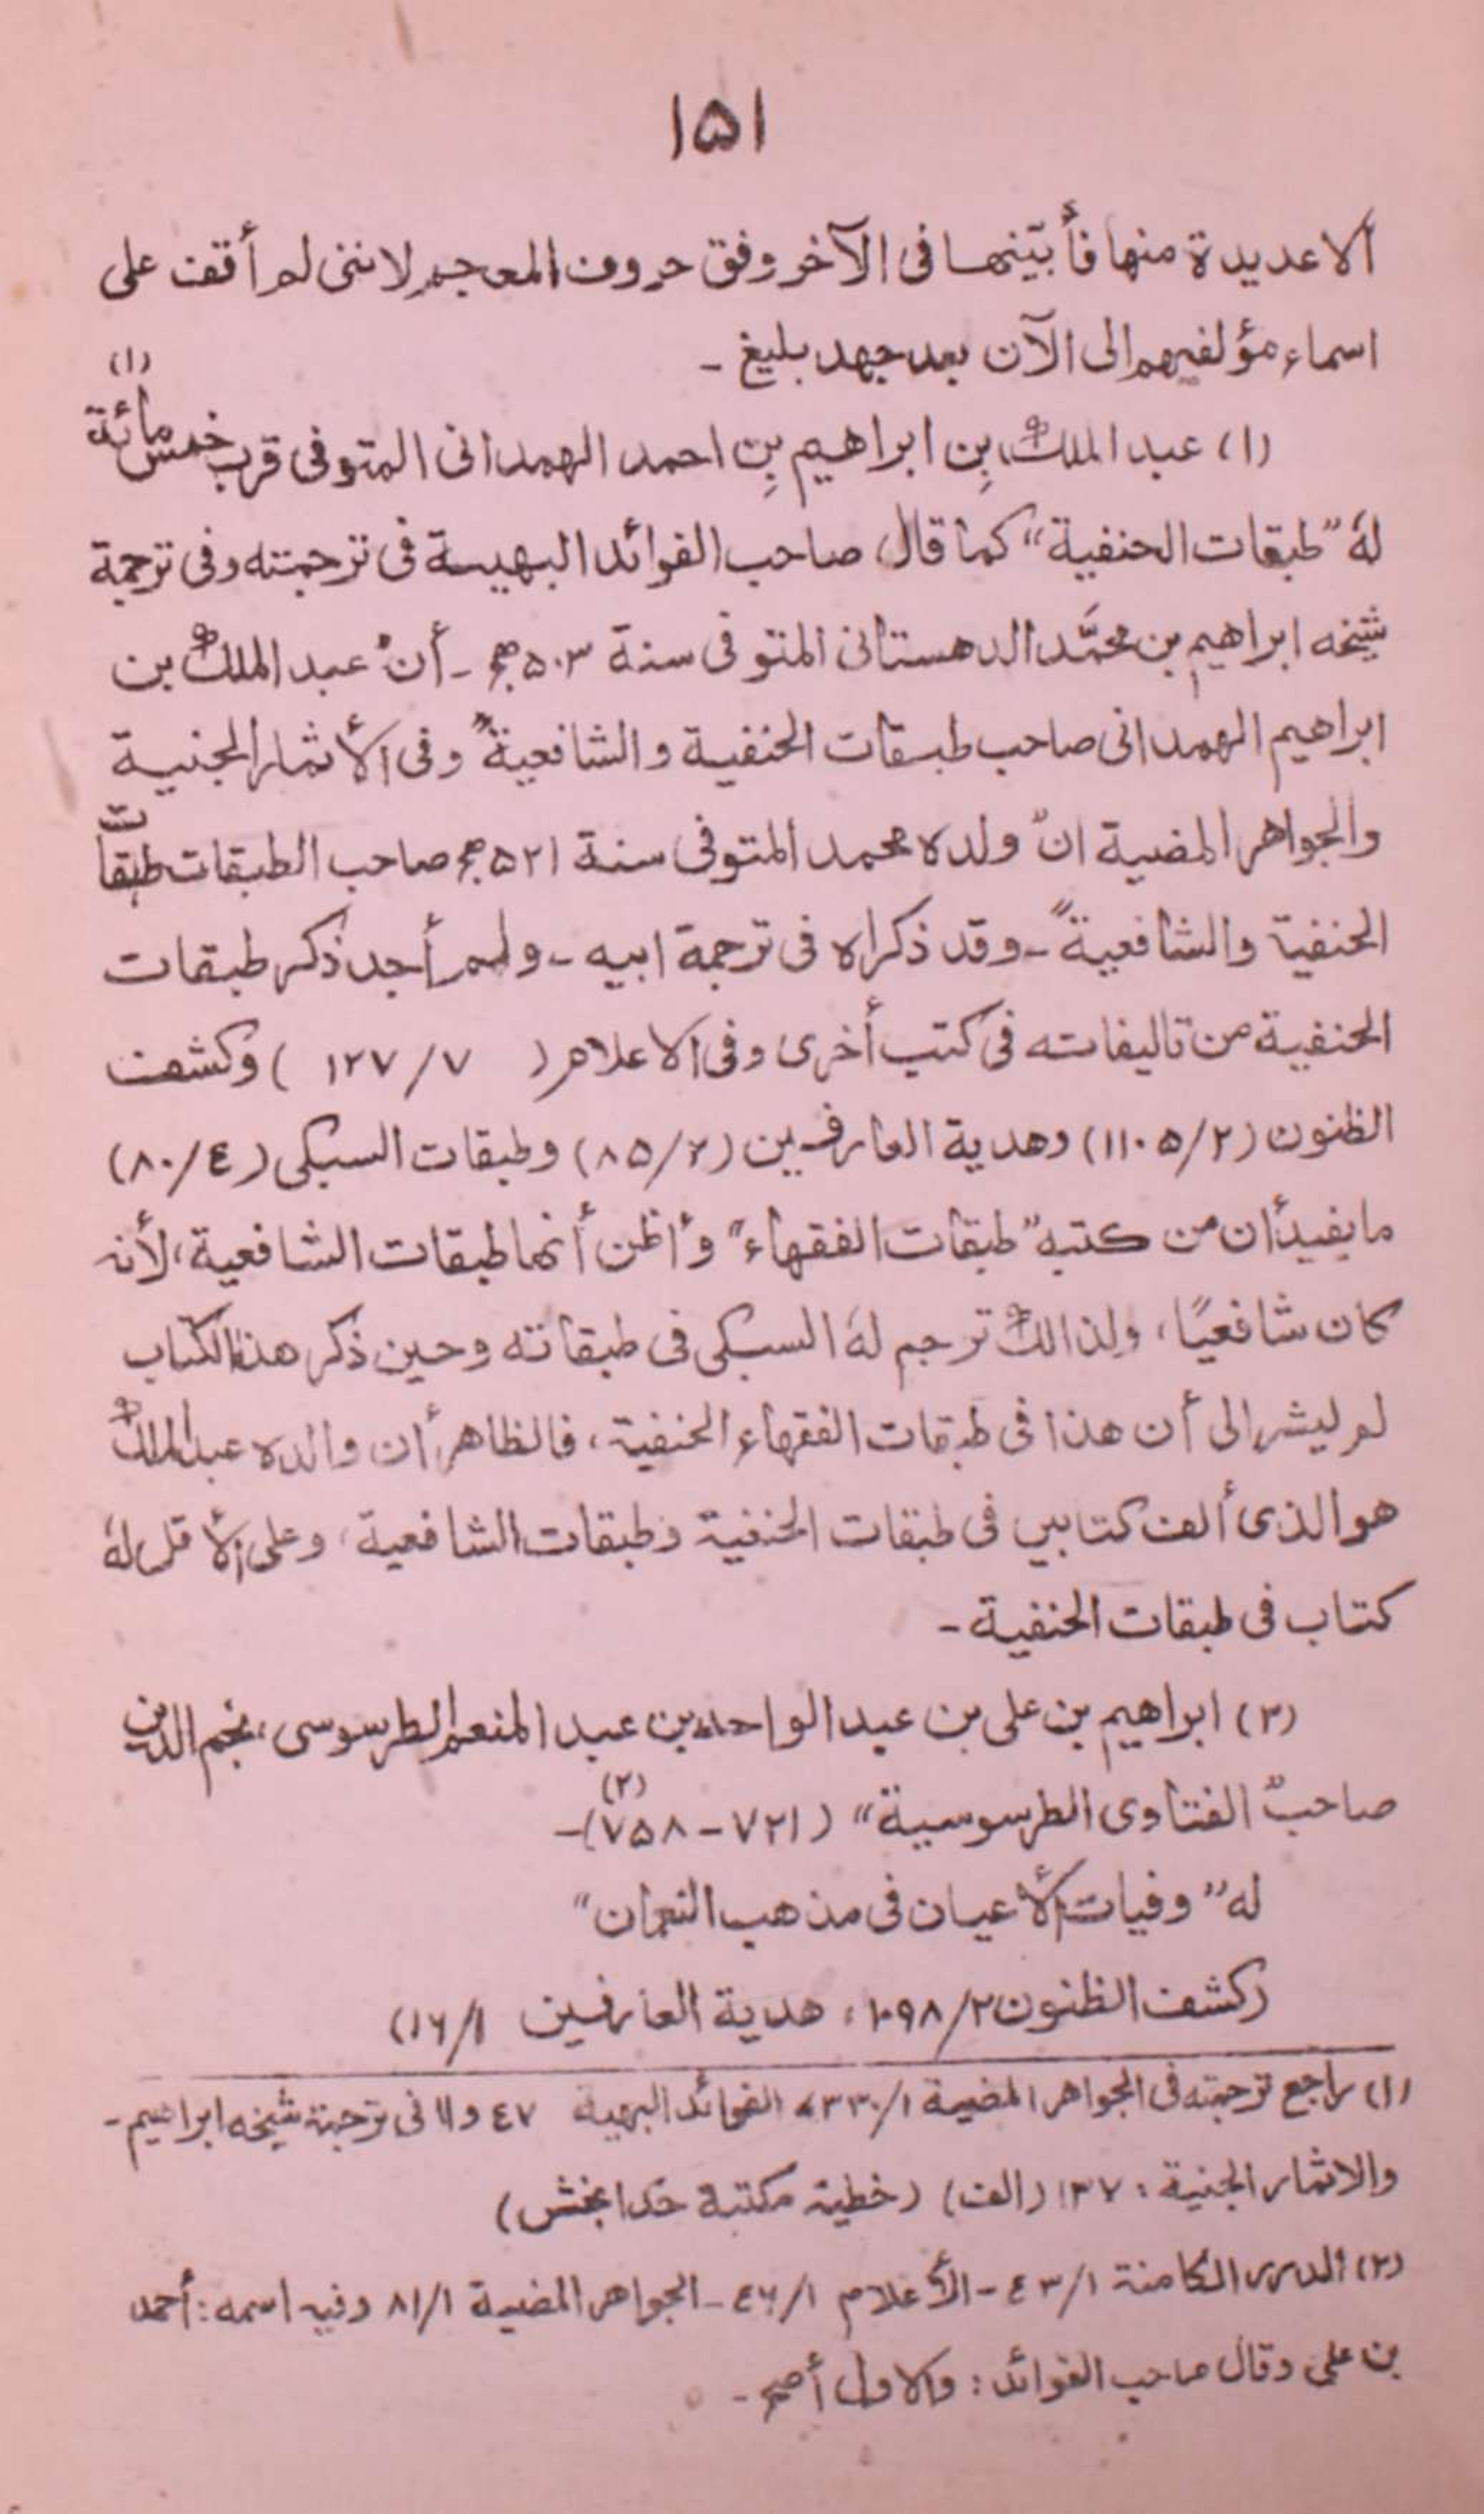 ١٥١
الا عديدة منها فأبيّنها فى الآخر وفق حروف المعجم لاننى لم أقف على
اسماء مؤلفيهم الى الآن بعد جهد بليغ ـ
(١) عبد الملك بن ابراهيم بن احمد الهمدانى المتوفى قرب خمس مائة (١)
لهٗ "طبقات الحنفية" كما قال صاحب الفوائد البهيـة فى ترجمته وفى ترجمة
شيخه ابراهيم بن محمَّد الدهستانى المتوفى سنة ٥٠٣ﻫ ـ أنّ عبد الملك بن
ابراهيم الهمدانى صاحب طبقات الحنفية والشافعية" وفى الأثمار الجنية
والجواهر المضية انّ ولده محمد المتوفى سنة ٥٢١ﻫ صاحب الطبقات طبقات
الحنفية والشافعية" ـ وقد ذكراه فى ترجمة ابيه ـ ولم أجد ذكر طبقات
الحنفية من تاليفاته فى كتب أخرى وفى الاعلام ( ٧/ ١٢٧ ) وكشف
الظنون (٢/ ١١٠٥) وهدية العارفين (٢/ ٨٥) وطبقات السبكى (٤/ ٨٠)
ما يفيد أن من كتبه "طبقات الفقهاء" وأظن أنها طبقات الشافعية، لأنه
كان شافعيًا، ولذالك ترجم لهٗ السبكى فى طبقاته وحين ذكر هذا الكتاب
لم يشر الى أن هذا فى طبقات الفقهاء الحنفية، فالظاهر أن والده عبد الملك
هو الذى ألف كتابيں فى طبقات الحنفية وطبقات الشافعية، وعلى الأقل لهٗ
كتاب فى طبقات الحنفية ـ
(٢) ابراهيم بن على بن عبد الواحد بن عبد المنعم الطرسوسى، نجم الدين
صاحب "الفتاوى الطرسوسية" (٧٢١ ـ ٧٥٨) (٢) ـ
له "وفيات الأعيان فى مذهب النعمان"
(كشف الظنون ٢/ ١٠٩٨، هدية العارفين ١/ ١٦)
(١) راجع ترجمته فى الجواهر المضية ١/ ٣٣٠، الفوائد البهية ٤٧ و ١١ فى ترجمة شيخه ابراهيم ـ
والاثمار الجنية: ١٣٧ (الف) (خطية مكتبة خدا بخش)
(٢) الدرر الكامنة ١/ ٤٣ ـ الأعلام ١/ ٤٦ ـ الجواهر المضية ١/ ٨١ وفيه اسمه: أحمد
بن على وقال صاحب الفوائد: والاول أصح ـ